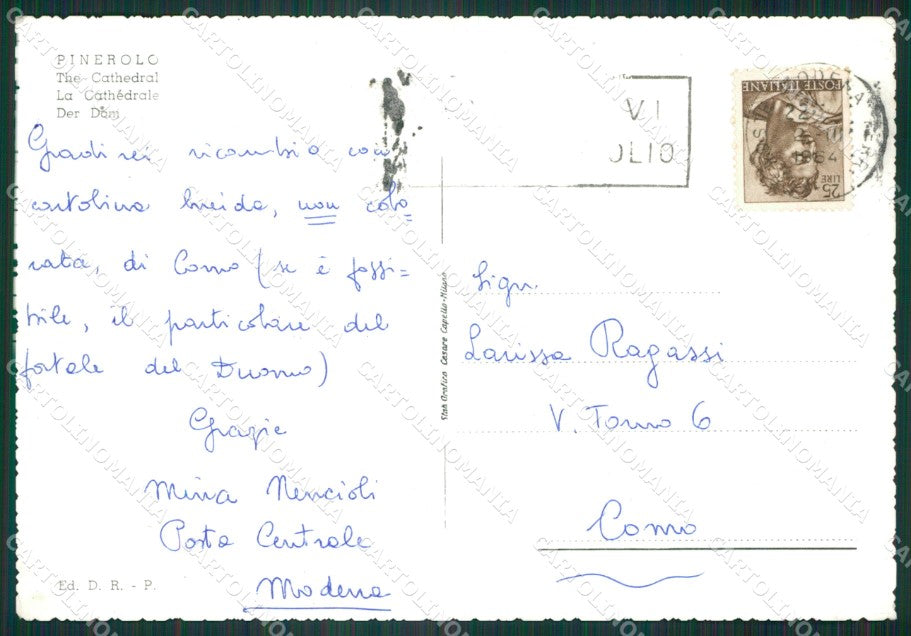 PINEROLO
The Cathedral
La Cathédrale
Der Dom
Gradirei ricambio con
cartolina lucida, non colo-
rata, di Como (se è possi-
bile, il particolare del
portale del Duomo)
Grazie
Mirra Nencioli
Posta Centrale
Modena
Ed. D. R. - P.
Stab. Grafico Cesare Capello - Milano
VI
OLIO
POSTE ITALIANE
LIRE 25
MODENA
1964
Sign.
Larissa Ragassi
V. Torno 6
Como
CARTOLINOMANIA